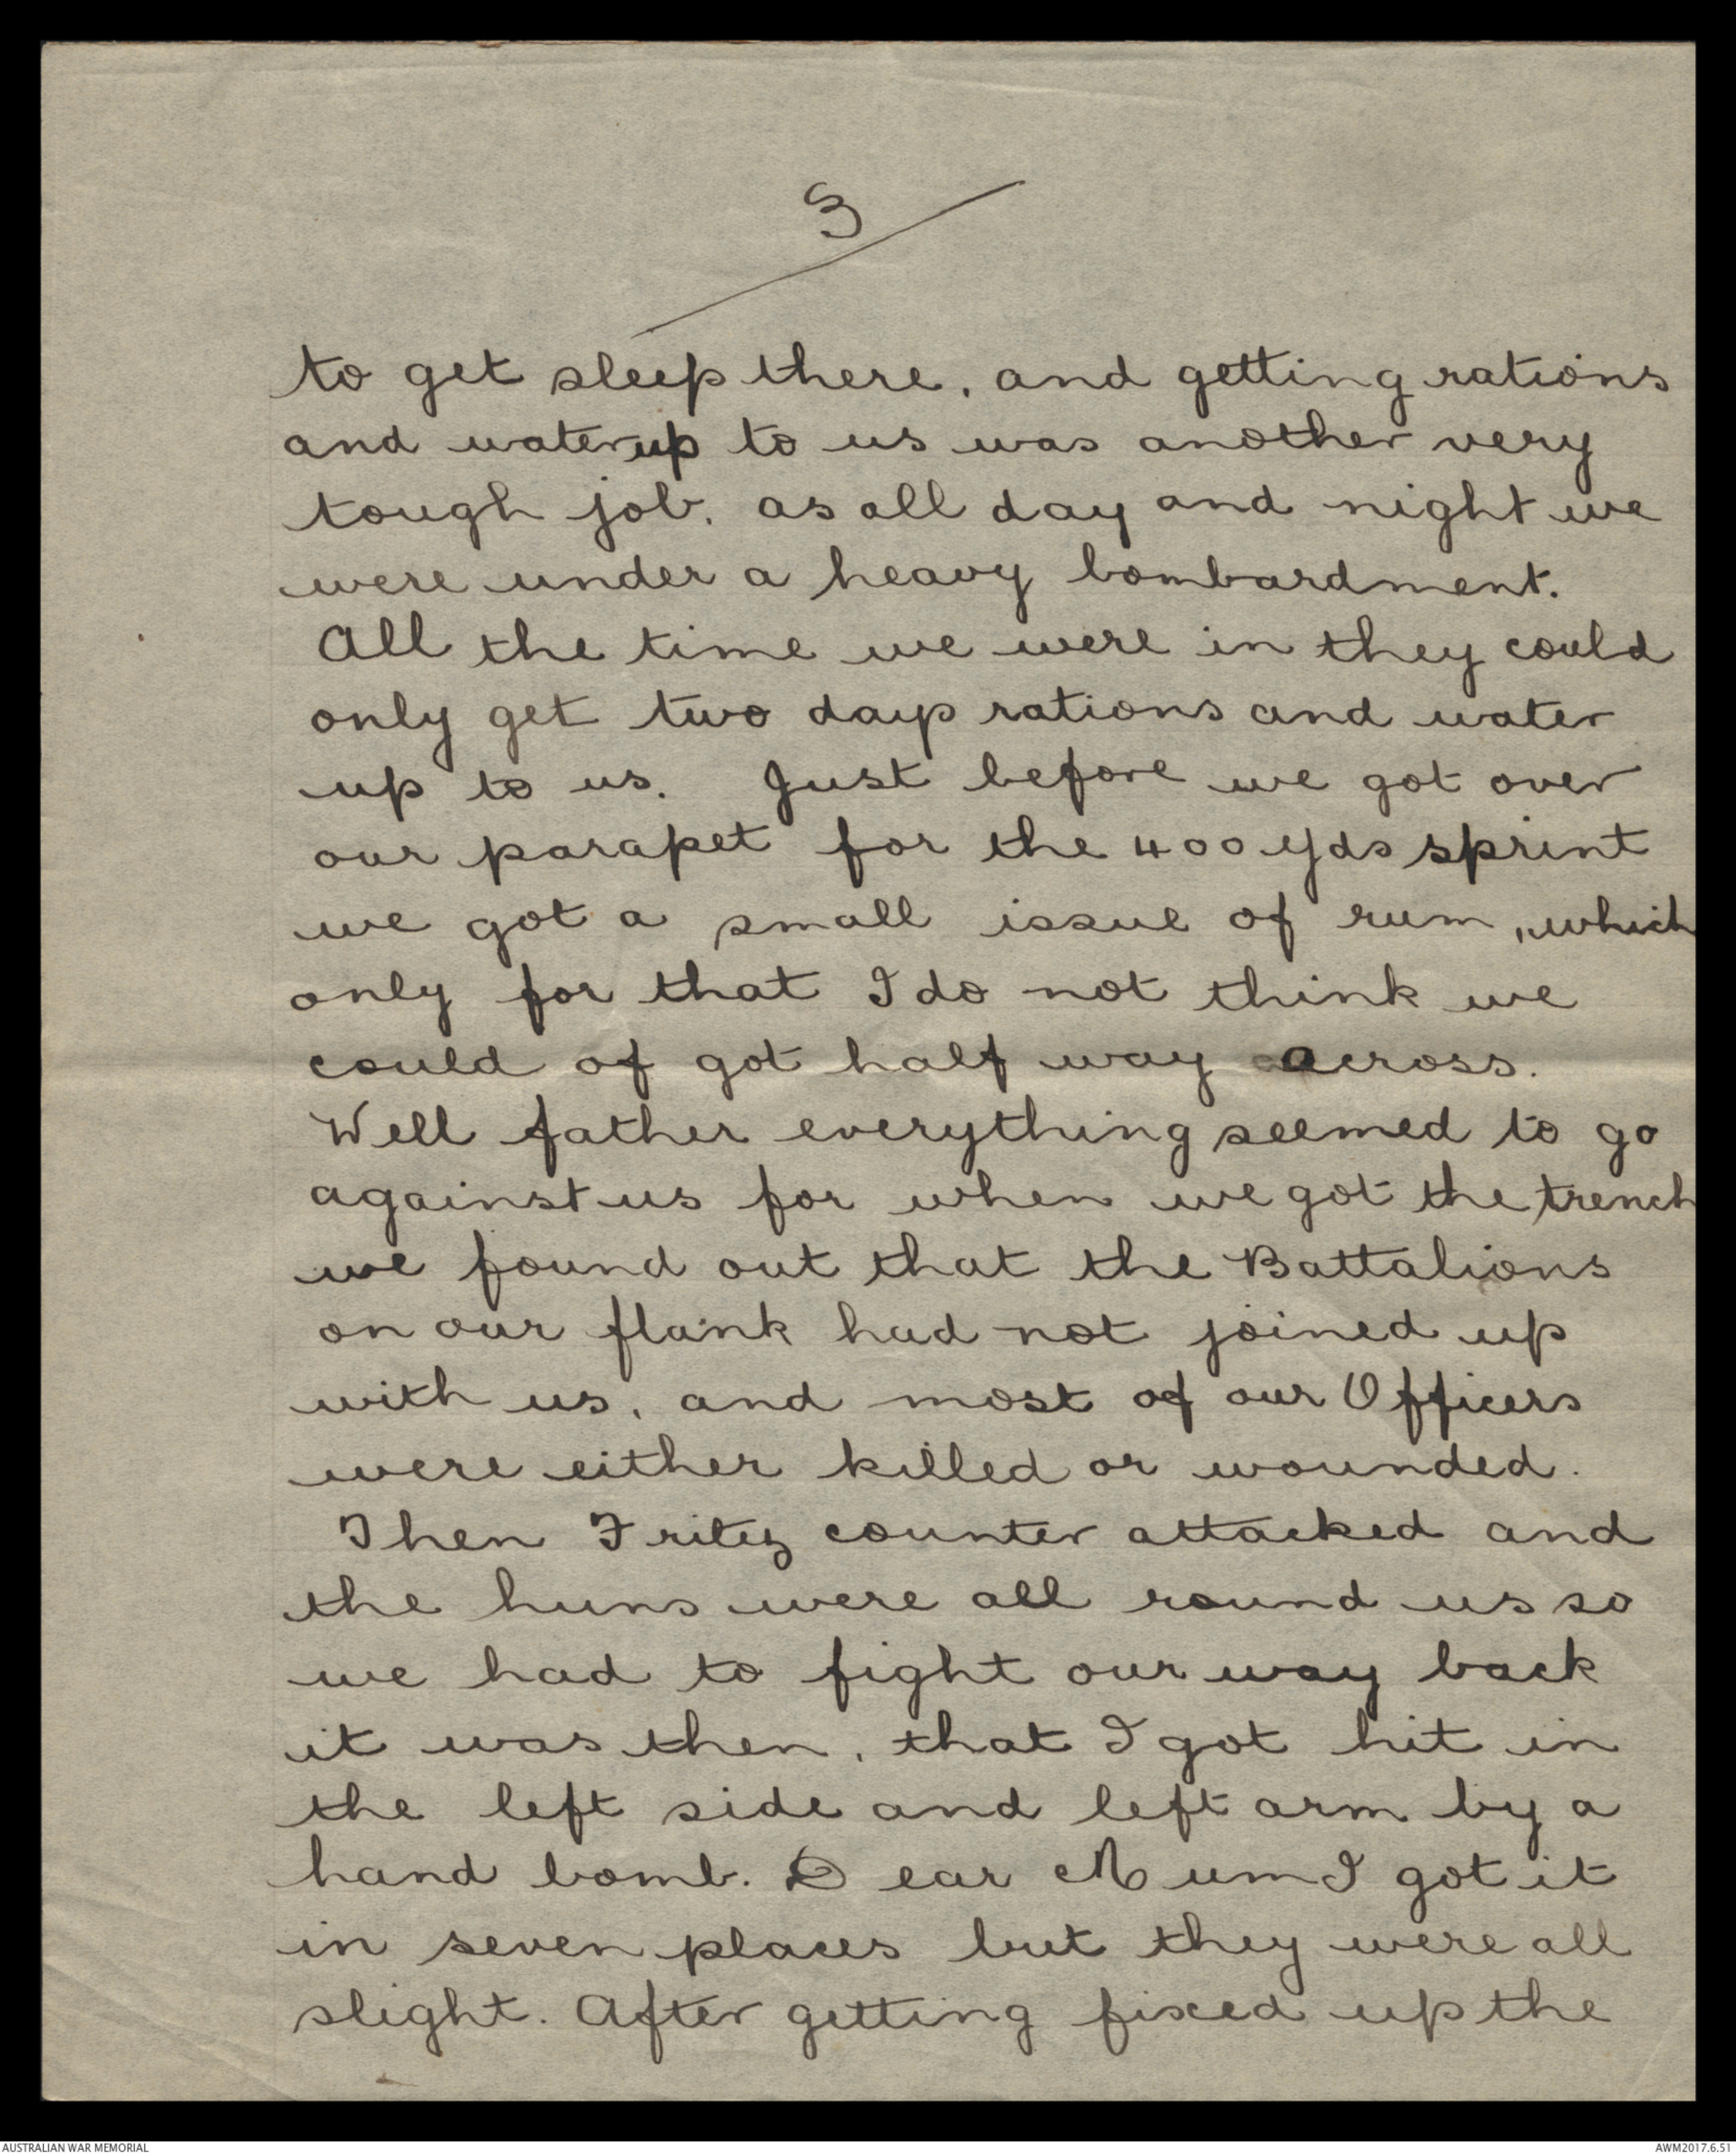 3
to get sleep there, and getting rations
and water up to us was another very
tough job, as all day and night we
were under a heavy bombardment.
All the time we were in they could
only get two days rations and water
up to us. Just before we got over
our parapet for the 400 yds sprint
we got a small issue of rum, which
only for that I do not think we
could of got half way across.
Well father everything seemed to go
against us for when we got the trench
we found out that the Battalions
on our flank had not joined up
with us, and most of our Officers
were either killed or wounded.
Then Fritz counter attacked and
the huns were all round us so
we had to fight our way back
it was then, that I got hit in
the left side and left arm by a
hand bomb. Dear Mum I got it
in seven places but they were all
slight. After getting fixed up the
AUSTRALIAN WAR MEMORIAL AWM2017.6.51